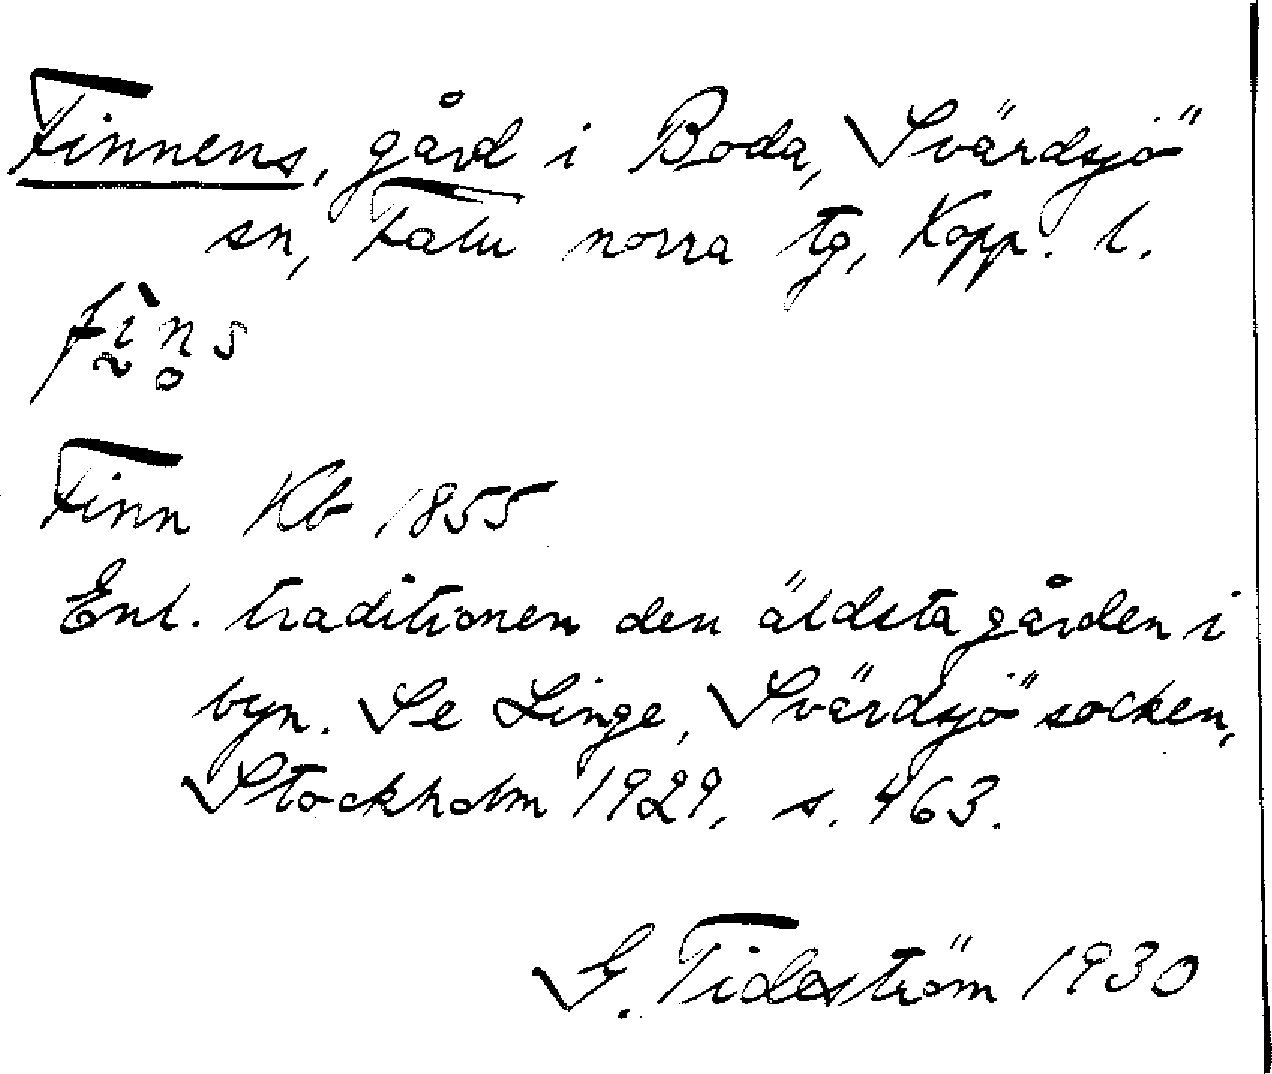 Finnens, gård i Boda, Svärdsjö
sn, Falu norra tg, Kopp. l.
fḭ̀n̥s
Finn Kb 1855
Enl. traditionen den äldsta gården i
byn. Se Linge, Svärdsjö socken,
Stockholm 1929, s. 463.
G. Tideström 1930